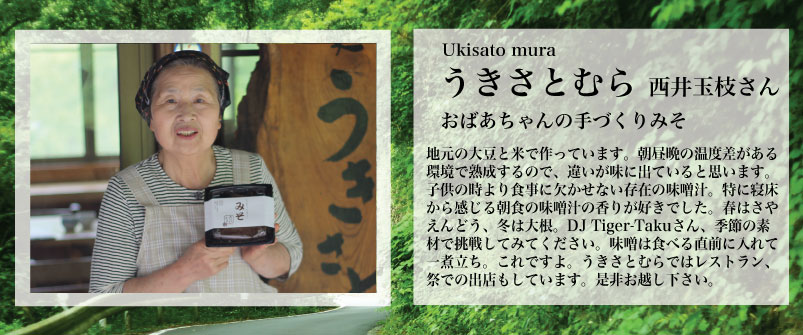 うきさと
みそ
Ukisato mura
うきさとむら 西井玉枝さん
おばあちゃんの手づくりみそ
地元の大豆と米で作っています。朝昼晩の温度差がある
環境で熟成するので、違いが味に出ていると思います。
子供の時より食事に欠かせない存在の味噌汁。特に寝床
から感じる朝食の味噌汁の香りが好きでした。春はさや
えんどう、冬は大根。DJ Tiger-Takuさん、季節の素
材で挑戦してみてください。味噌は食べる直前に入れて
一煮立ち。これですよ。うきさとむらではレストラン、
祭での出店もしています。是非お越し下さい。